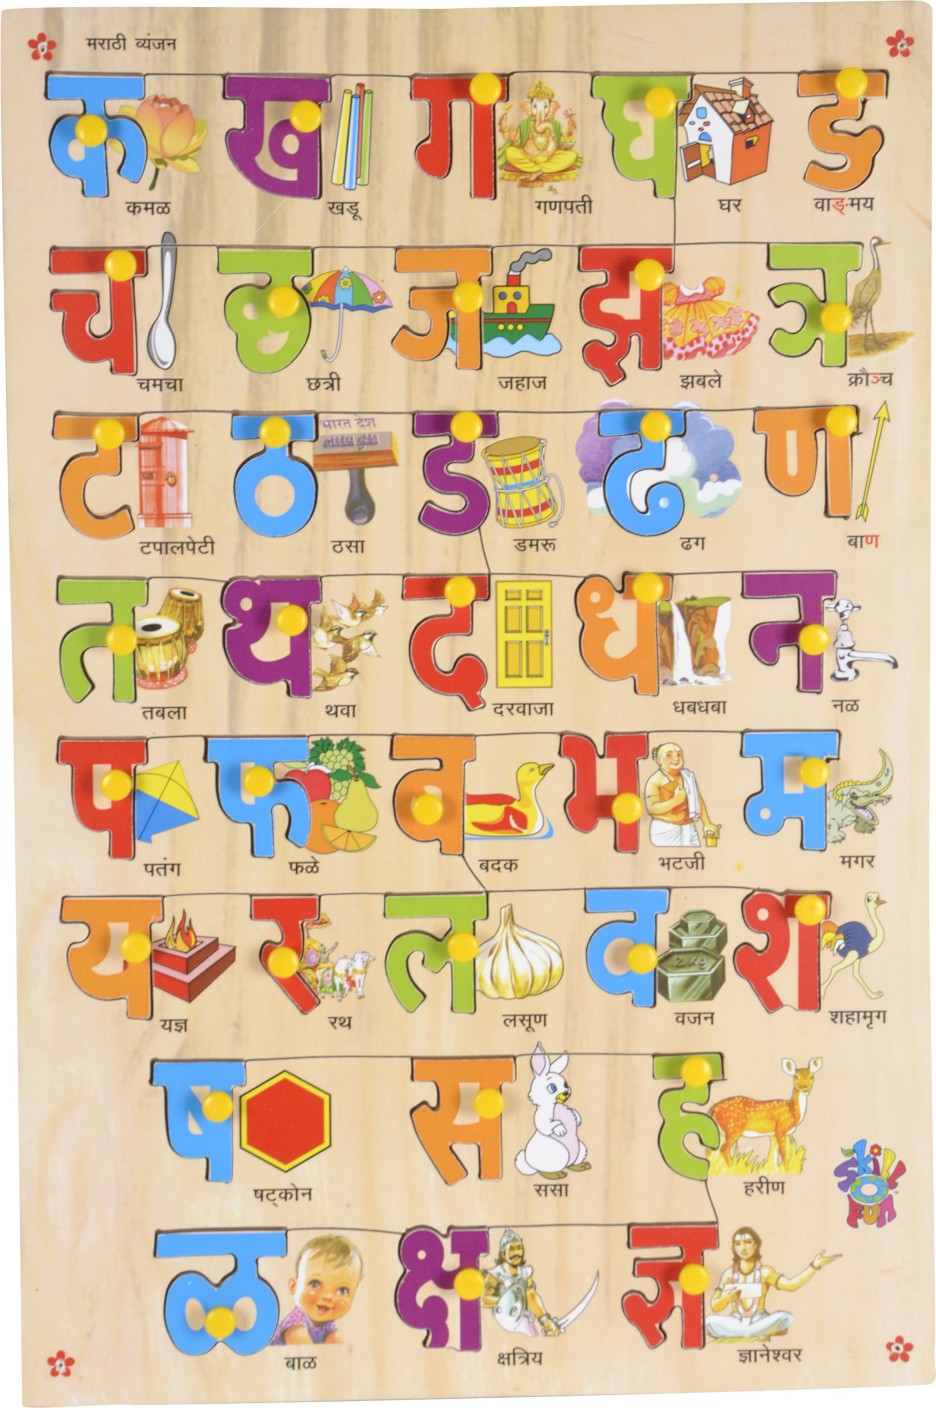 मराठी व्यंजन
क ख ग घ ङ
कमळ खडू गणपती घर वाङ्‌मय
च छ ज झ ञ
चमचा छत्री जहाज झबले क्रौञ्च
ट ठ ड ढ ण
भारत देश
टपालपेटी ठसा डमरू ढग बाण
त थ द ध न
तबला थवा दरवाजा धबधबा नळ
प फ ब भ म
पतंग फळे बदक भटजी मगर
य र ल व श
2 KG
यज्ञ रथ लसूण वजन शहामृग
ष स ह
षट्कोन ससा हरीण
Skill
FUN
ळ क्ष ज्ञ
बाळ क्षत्रिय ज्ञानेश्वर